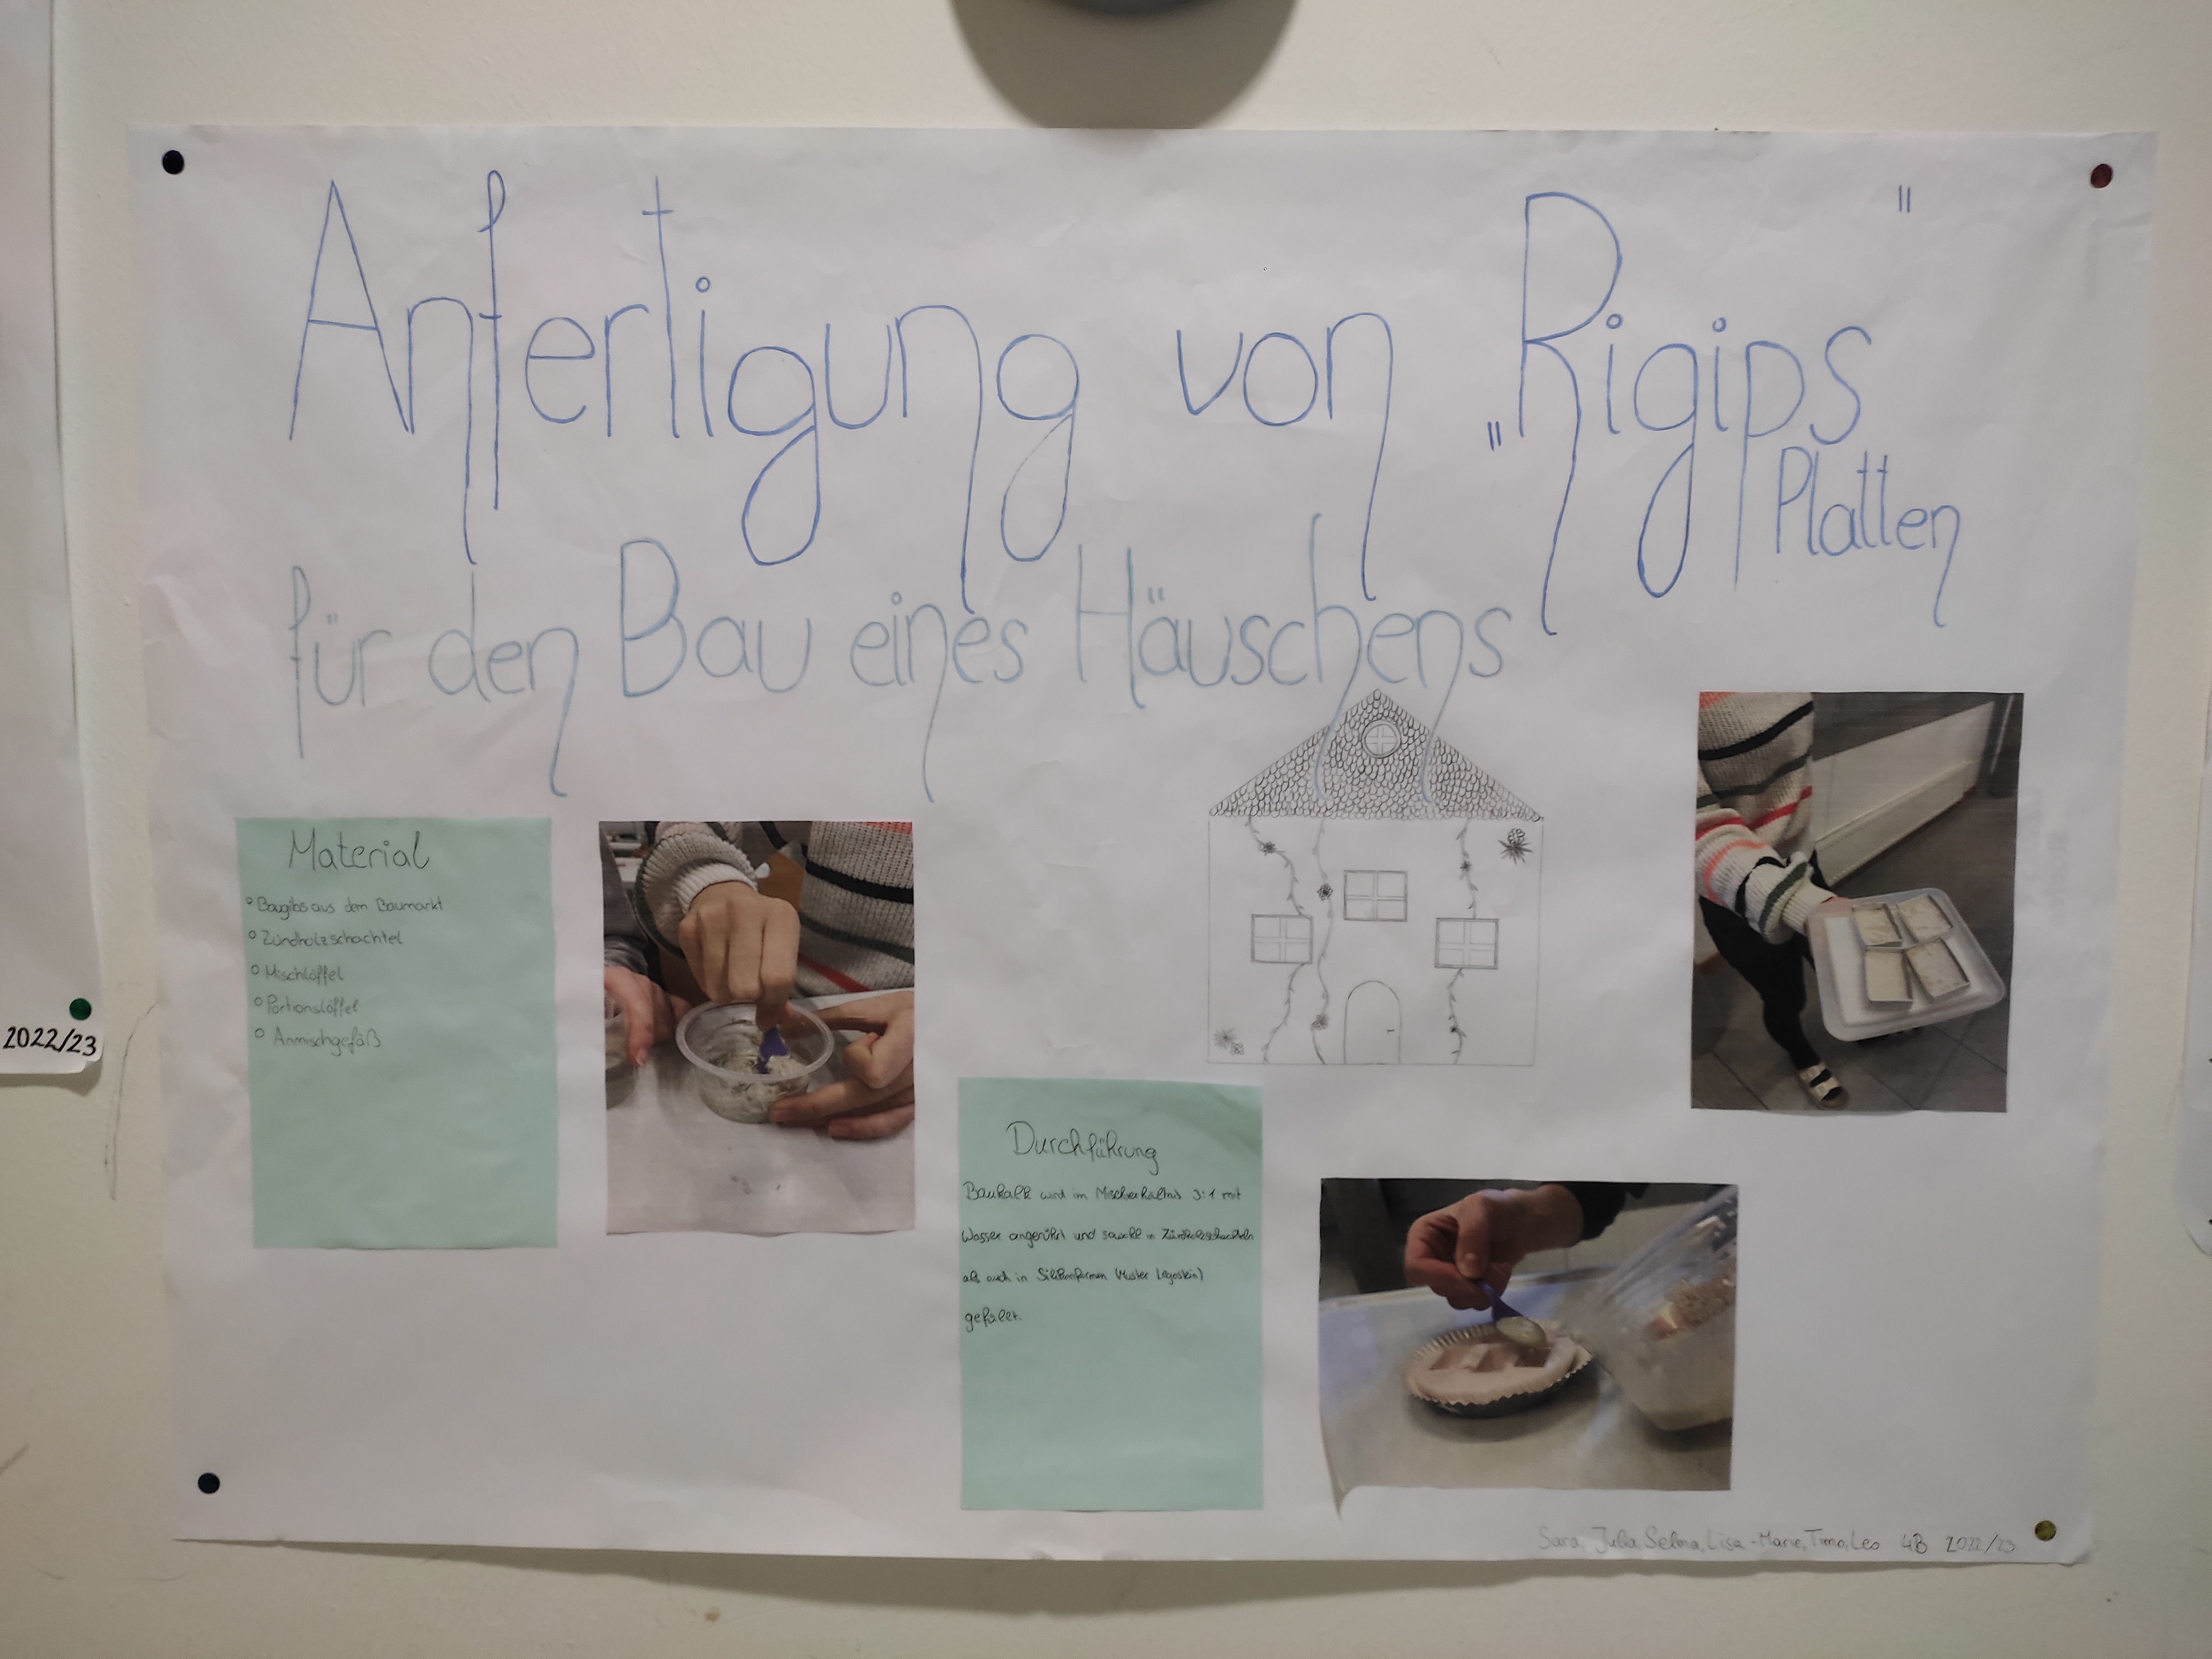 Anfertigung von „Rigips"
Platten
für den Bau eines Häuschens
Material
Baugibs aus dem Baumarkt
Zündholzschachtel
Mischlöffel
Portionslöffel
Anmischgefäß
Durchführung
Baukalk wird im Mischverhältnis 3:1 mit
Wasser angerührt und sowohl in Zündholzschachteln
als auch in Silikonformen (Muster Legostein)
gefüllt.
Sara, Julia, Selma, Lisa-Marie, Timo, Leo 4B 2022/23
2022/23